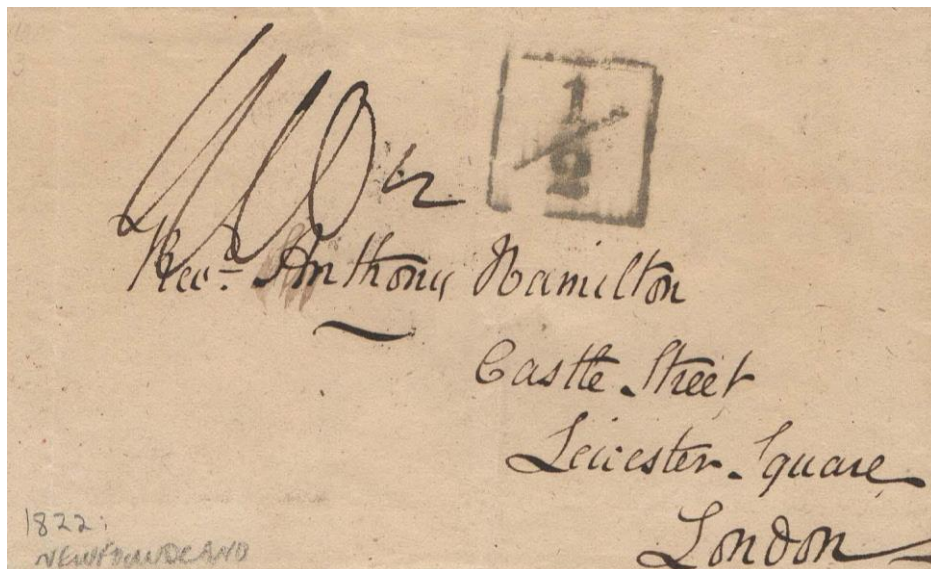 1/2
Revd. Anthony Hamilton
Castle Street
Leicester Square
London
1822.
NEWFOUNDLAND